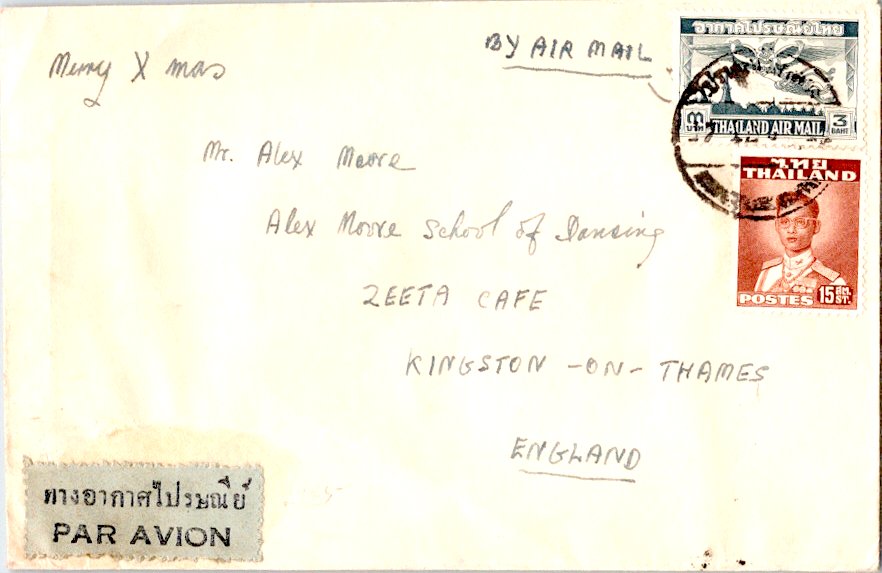 Merry X mas
BY AIR MAIL
อากาศไปรษณีย์ไทย
๓ บาท
THAILAND AIR MAIL
3 BAHT
ไทย
THAILAND
POSTES
15 ST.
Mr. Alex Moore
Alex Moore School of Dancing
ZEETA CAFE
KINGSTON -ON- THAMES
ENGLAND
ทางอากาศไปรษณีย์
PAR AVION